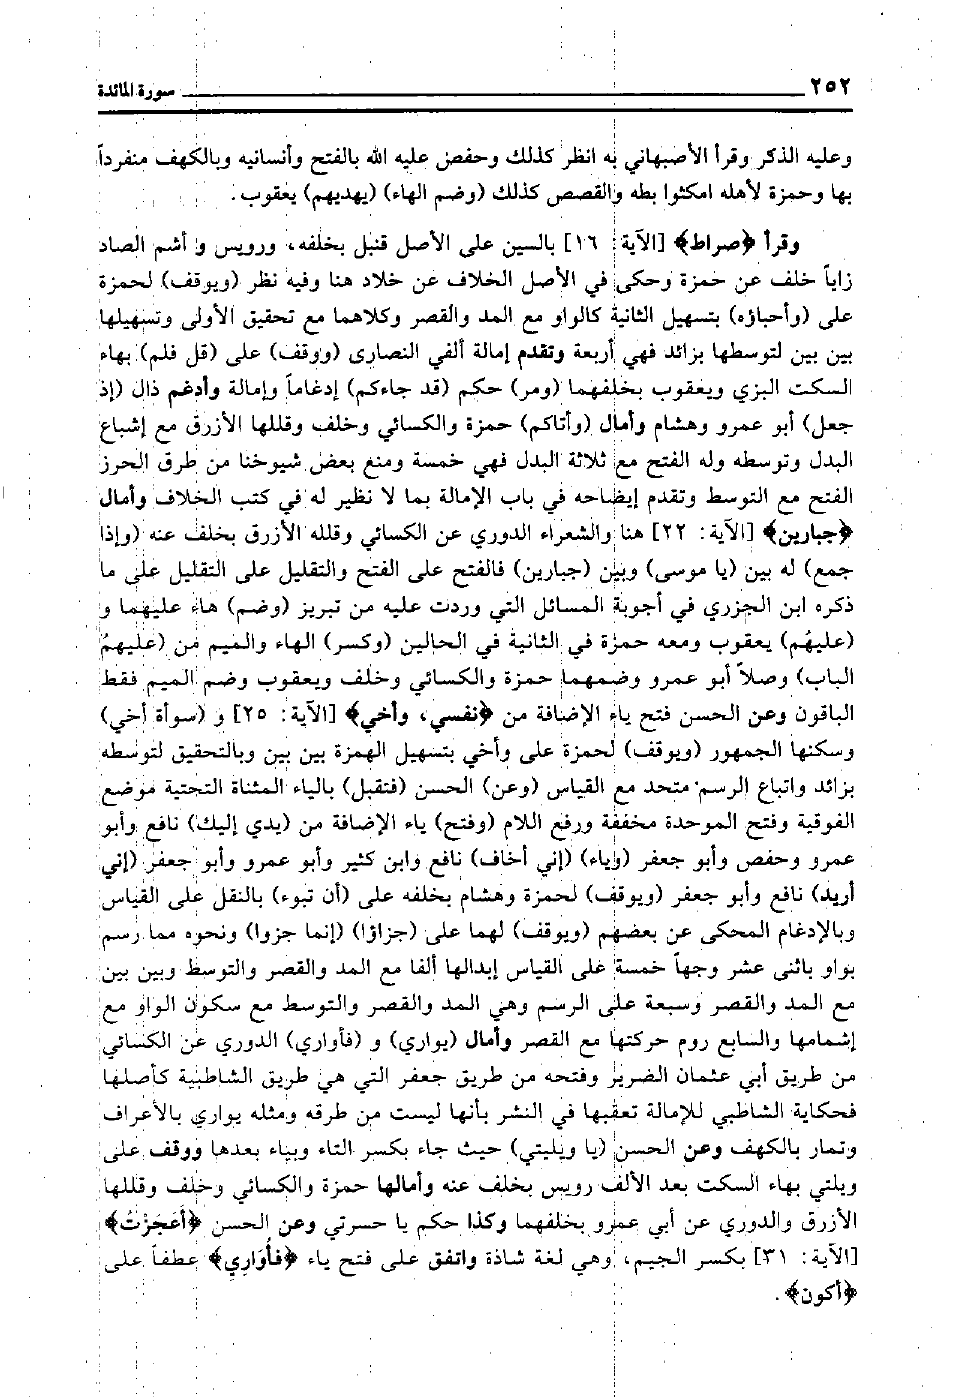 ٢٥٢ سورة المائدة
وعليه الذكر وقرأ الأصبهاني به انظر كذلك وحفص عليه الله بالفتح وأنسانيه وبالكهف منفرداً
بها وحمزة لأهله امكثوا بطه والقصص كذلك (وضم الهاء) (يهديهم) يعقوب.
وقرأ ﴿صراط﴾ [الآية: ١٦] بالسين على الأصل قنبل بخلفه، ورويس و أشم الصاد
زاياً خلف عن حمزة وحكى في الأصل الخلاف عن خلاد هنا وفيه نظر (ويوقف) لحمزة
على (وأحباؤه) بتسهيل الثانية كالواو مع المد والقصر وكلاهما مع تحقيق الأولى وتسهيلها
بين بين لتوسطها بزائد فهي أربعة وتقدم إمالة ألفي النصارى (ووقف) على (قل فلم) بهاء
السكت البزي ويعقوب بخلفهما (ومر) حكم (قد جاءكم) إدغاماً وإمالة وأدغم ذال (إذ
جعل) أبو عمرو وهشام وأمال (وأتاكم) حمزة والكسائي وخلف وقللها الأزرق مع إشباع
البدل وتوسطه وله الفتح مع ثلاثة البدل فهي خمسة ومنع بعض شيوخنا من طرق الحرز
الفتح مع التوسط وتقدم إيضاحه في باب الإمالة بما لا نظير له في كتب الخلاف وأمال
﴿جبارين﴾ [الآية: ٢٢] هنا والشعراء الدوري عن الكسائي وقلله الأزرق بخلف عنه (وإذا
جمع) له بين (يا موسى) وبين (جبارين) فالفتح على الفتح والتقليل على التقليل على ما
ذكره ابن الجزري في أجوبة المسائل التي وردت عليه من تبريز (وضم) هاء عليهما و
(عليهُم) يعقوب ومعه حمزة في الثانية في الحالين (وكسر) الهاء والميم من (عليهمُ
الباب) وصلاً أبو عمرو وضمهما حمزة والكسائي وخلف ويعقوب وضم الميم فقط
الباقون وعن الحسن فتح ياء الإضافة من ﴿نفسي، وأخي﴾ [الآية: ٢٥] و (سوأة أخي)
وسكنها الجمهور (ويوقف) لحمزة على وأخي بتسهيل الهمزة بين بين وبالتحقيق لتوسطه
بزائد واتباع الرسم متحد مع القياس (وعن) الحسن (فتقبل) بالياء المثناة التحتية موضع
الفوقية وفتح الموحدة مخففة ورفع اللام (وفتح) ياء الإضافة من (يدي إليك) نافع وأبو
عمرو وحفص وأبو جعفر (وياء) (إني أخاف) نافع وابن كثير وأبو عمرو وأبو جعفر (إني
أريد) نافع وأبو جعفر (ويوقف) لحمزة وهشام بخلفه على (أن تبوء) بالنقل على القياس
وبالإدغام المحكى عن بعضهم (ويوقف) لهما على (جزاؤا) (إنما جزوا) ونحوه مما رسم
بواو باثنى عشر وجهاً خمسة على القياس إبدالها ألفا مع المد والقصر والتوسط وبين بين
مع المد والقصر وسبعة على الرسم وهي المد والقصر والتوسط مع سكون الواو مع
إشمامها والسابع روم حركتها مع القصر وأمال (يواري) و (فأواري) الدوري عن الكسائي
من طريق أبي عثمان الضرير وفتحه من طريق جعفر التي هي طريق الشاطبية كأصلها
فحكاية الشاطبي للإمالة تعقبها في النشر بأنها ليست من طرقه ومثله يواري بالأعراف
وتمار بالكهف وعن الحسن (يا ويليتي) حيث جاء بكسر التاء وبياء بعدها ووقف على
ويلتي بهاء السكت بعد الألف رويس بخلف عنه وأمالها حمزة والكسائي وخلف وقللها
الأزرق والدوري عن أبي عمرو بخلفهما وكذا حكم يا حسرتي وعن الحسن ﴿أَعَجِزْتُ﴾
[الآية: ٣١] بكسر الجيم، وهي لغة شاذة واتفق على فتح ياء ﴿فأُوَارِي﴾ عطفاً على
﴿أكون﴾.